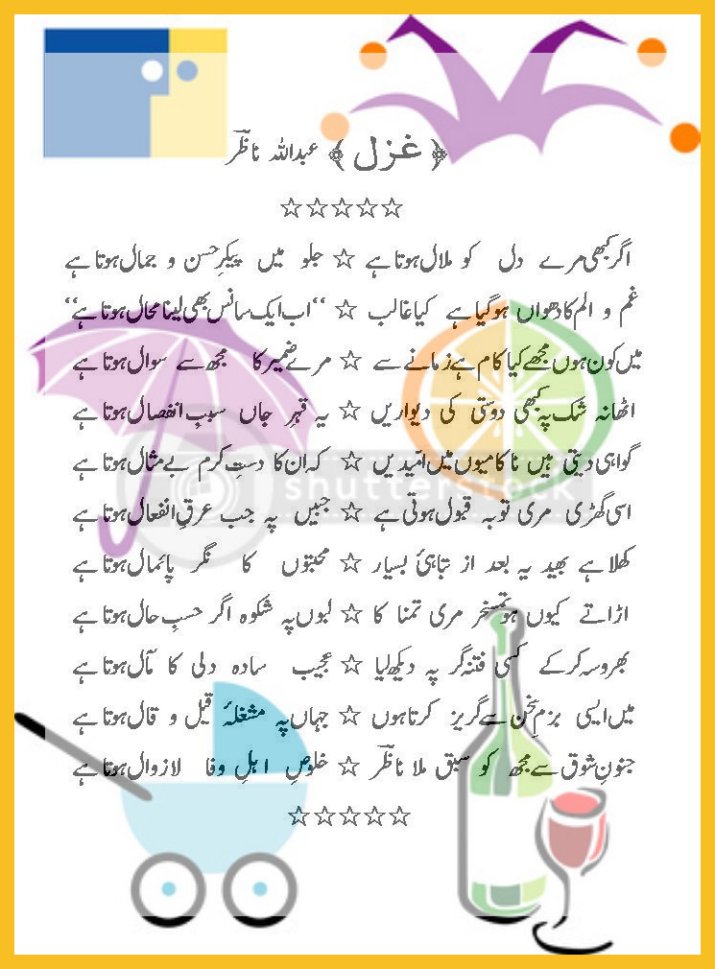 ﴿ غزل ﴾ عبداللہ ناظؔر
☆☆☆☆☆
اگر کبھی مرے دل کو ملال ہوتا ہے ☆ جلو میں پیکرِ حسن و جمال ہوتا ہے
غم و الم کا دھواں ہوگیا ہے کیا غالب ☆ ‘‘اب ایک سانس بھی لینا محال ہوتا ہے’’
میں کون ہوں مجھے کیا کام ہے زمانے سے ☆ مرے ضمیر کا مجھ سے سوال ہوتا ہے
اٹھا نہ شک پہ کبھی دوستی کی دیواریں ☆ یہ قہرِ جاں سببِ انفصال ہوتا ہے
گواہی دیتی ہیں ناکامیوں میں امیدیں ☆ کہ ان کا دستِ کرم بے مثال ہوتا ہے
shutterstock
اسی گھڑی مری توبہ قبول ہوتی ہے ☆ جبیں پہ جب عرقِ انفعال ہوتا ہے
کھلا ہے بھید یہ بعد از تباہیٔ بسیار ☆ محبتوں کا نگر پائمال ہوتا ہے
اڑاتے کیوں ہو تمسخر مری تمنا کا ☆ لبوں پہ شکوہ اگر حسبِ حال ہوتا ہے
بھروسہ کرکے کسی فتنہ گر پہ دیکھ لیا ☆ عجیب سادہ دلی کا مآل ہوتا ہے
میں ایسی بزمِ سخن سے گریز کرتا ہوں ☆ جہاں پہ مشغلۂ قیل و قال ہوتا ہے
جنونِ شوق سے مجھ کو سبق ملا ناظؔر ☆ خلوصِ اہلِ وفا لازوال ہوتا ہے
☆☆☆☆☆